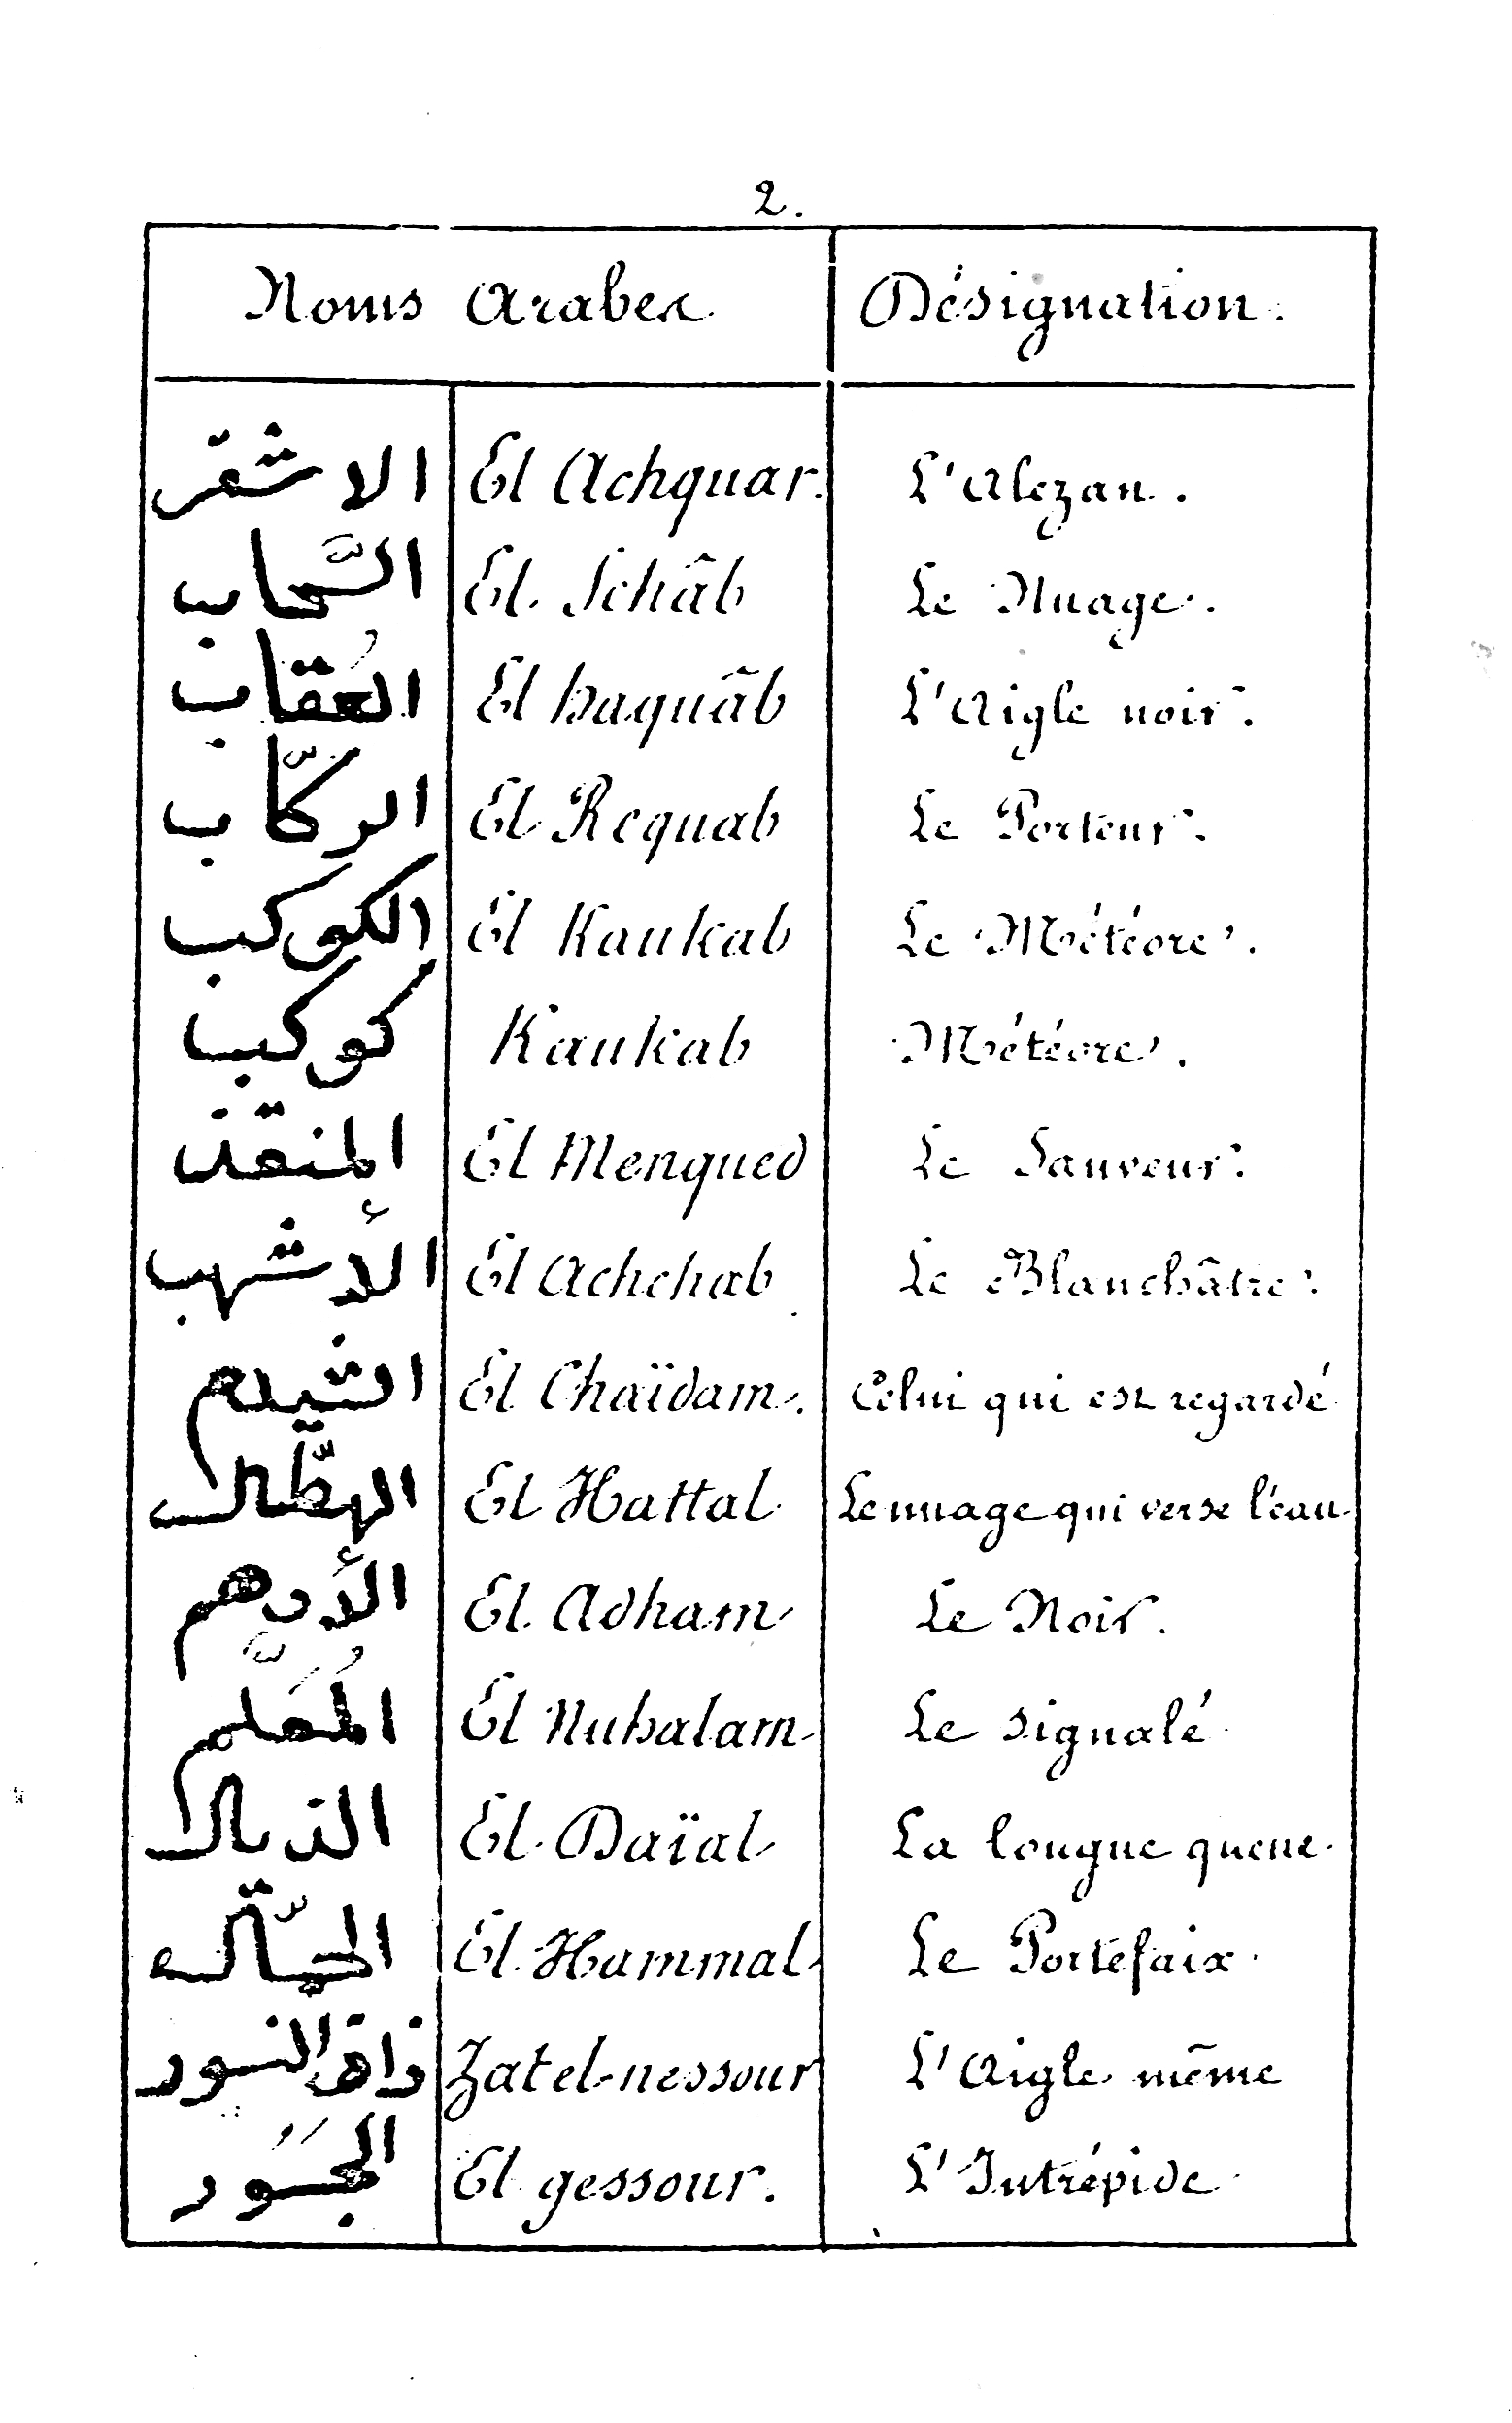 2.
Noms Arabes. Désignation.
الاشقر El Achquar. L'Alezan.
السَّحاب El Schâb Le Nuage.
العُقاب El haquâb L'Aigle noir.
الركَّاب El Requab Le Porteur.
الكوكب El Kaukab Le Météore.
كوكب Kaukab Météore.
المنقذ El Mengued Le Sauveur.
الأشهب El Achchab Le Blanchâtre.
الشيدم El Chaïdam. Celui qui est regardé
الهطَّال El Hattal Le nuage qui verse l'eau
الأدهم El Adham Le Noir.
المُعَلَّم El Muhalam Le signalé
الذيال El Daïal La longue queue
الحمَّال El Hammal Le Portefaix
النسور Zatel-nessour L'Aigle même
الجَسُور El gessour. L'Intrépide